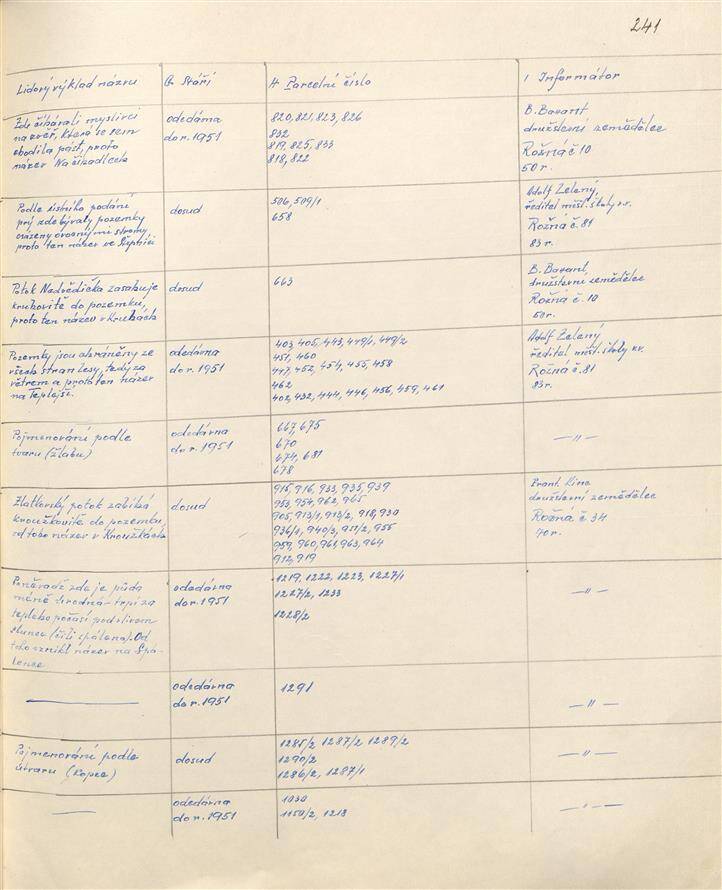 241
Lidový výklad názvu
G Stáří
H Parcelní číslo
I Informátor
Zde číhávali myslivci
na zvěř, která se sem
chodila pást, proto
název Na čihadlech
odedávna
do r. 1951
820, 821, 823, 826
832
819, 825, 833
818, 822
B. Bavant
družstevní zemědělec
Rožná č 10
50 r.
Podle ústního podání
prý zde bývaly pozemky
osázeny ovocnými stromy
proto ten název ve
dosud
506, 509/1
658
Adolf Zelený,
ředitel měšť. školy v.v.
Rožná č. 81
83 r.
Potok Nedvědička zasahuje
kruhovitě do pozemku,
proto ten název v Kruhách
dosud
663
B. Bavant,
družstevní zemědělec
Rožná č. 10
50r.
Pozemky jsou chráněny ze
všech stran lesy, tedy za
větrem a proto ten název
na Teplejši.
odedávna
do r. 1951
403, 405, 443, 449/1, 449/2
451, 460
447, 452, 454, 455, 458
462
402, 432, 444, 446, 456, 459, 461
Adolf Zelený
ředitel měšť. školy v.v.
Rožná č. 81
83r.
Pojmenování podle
tvaru (žlabu)
odedávna
do r. 1951
667, 675
670
674, 681
678
—"—
Zlatkovský potok zabíhá
kroužkovitě do pozemku,
od toho název v Kroužkách
dosud
915, 916, 933, 935, 939
953, 954, 962, 965
905, 913/1, 913/2, 918, 930
936/1, 940/3, 951/2, 955
959, 960, 961, 963, 964
912, 919
Frant. Line
družstevní zemědělec
Rožná č 34
70 r.
Poněvadž zde je půda
méně úrodná - trpí za
teplého počasí pod vlivem
slunce (čili spálena). Od
toho vznikl název na Spá-
lence
odedávna
do r. 1951
1219, 1222, 1223, 1227/1
1227/2, 1233
1228/2
—"—
—
odedávna
do r. 1951
1291
—"—
Pojmenování podle
útvaru (kopce)
dosud
1285/2, 1287/2 1289/2
1290/2
1286/2, 1287/1
—"—
—
odedávna
do r. 1951
1030
1150/2, 1213
—"—